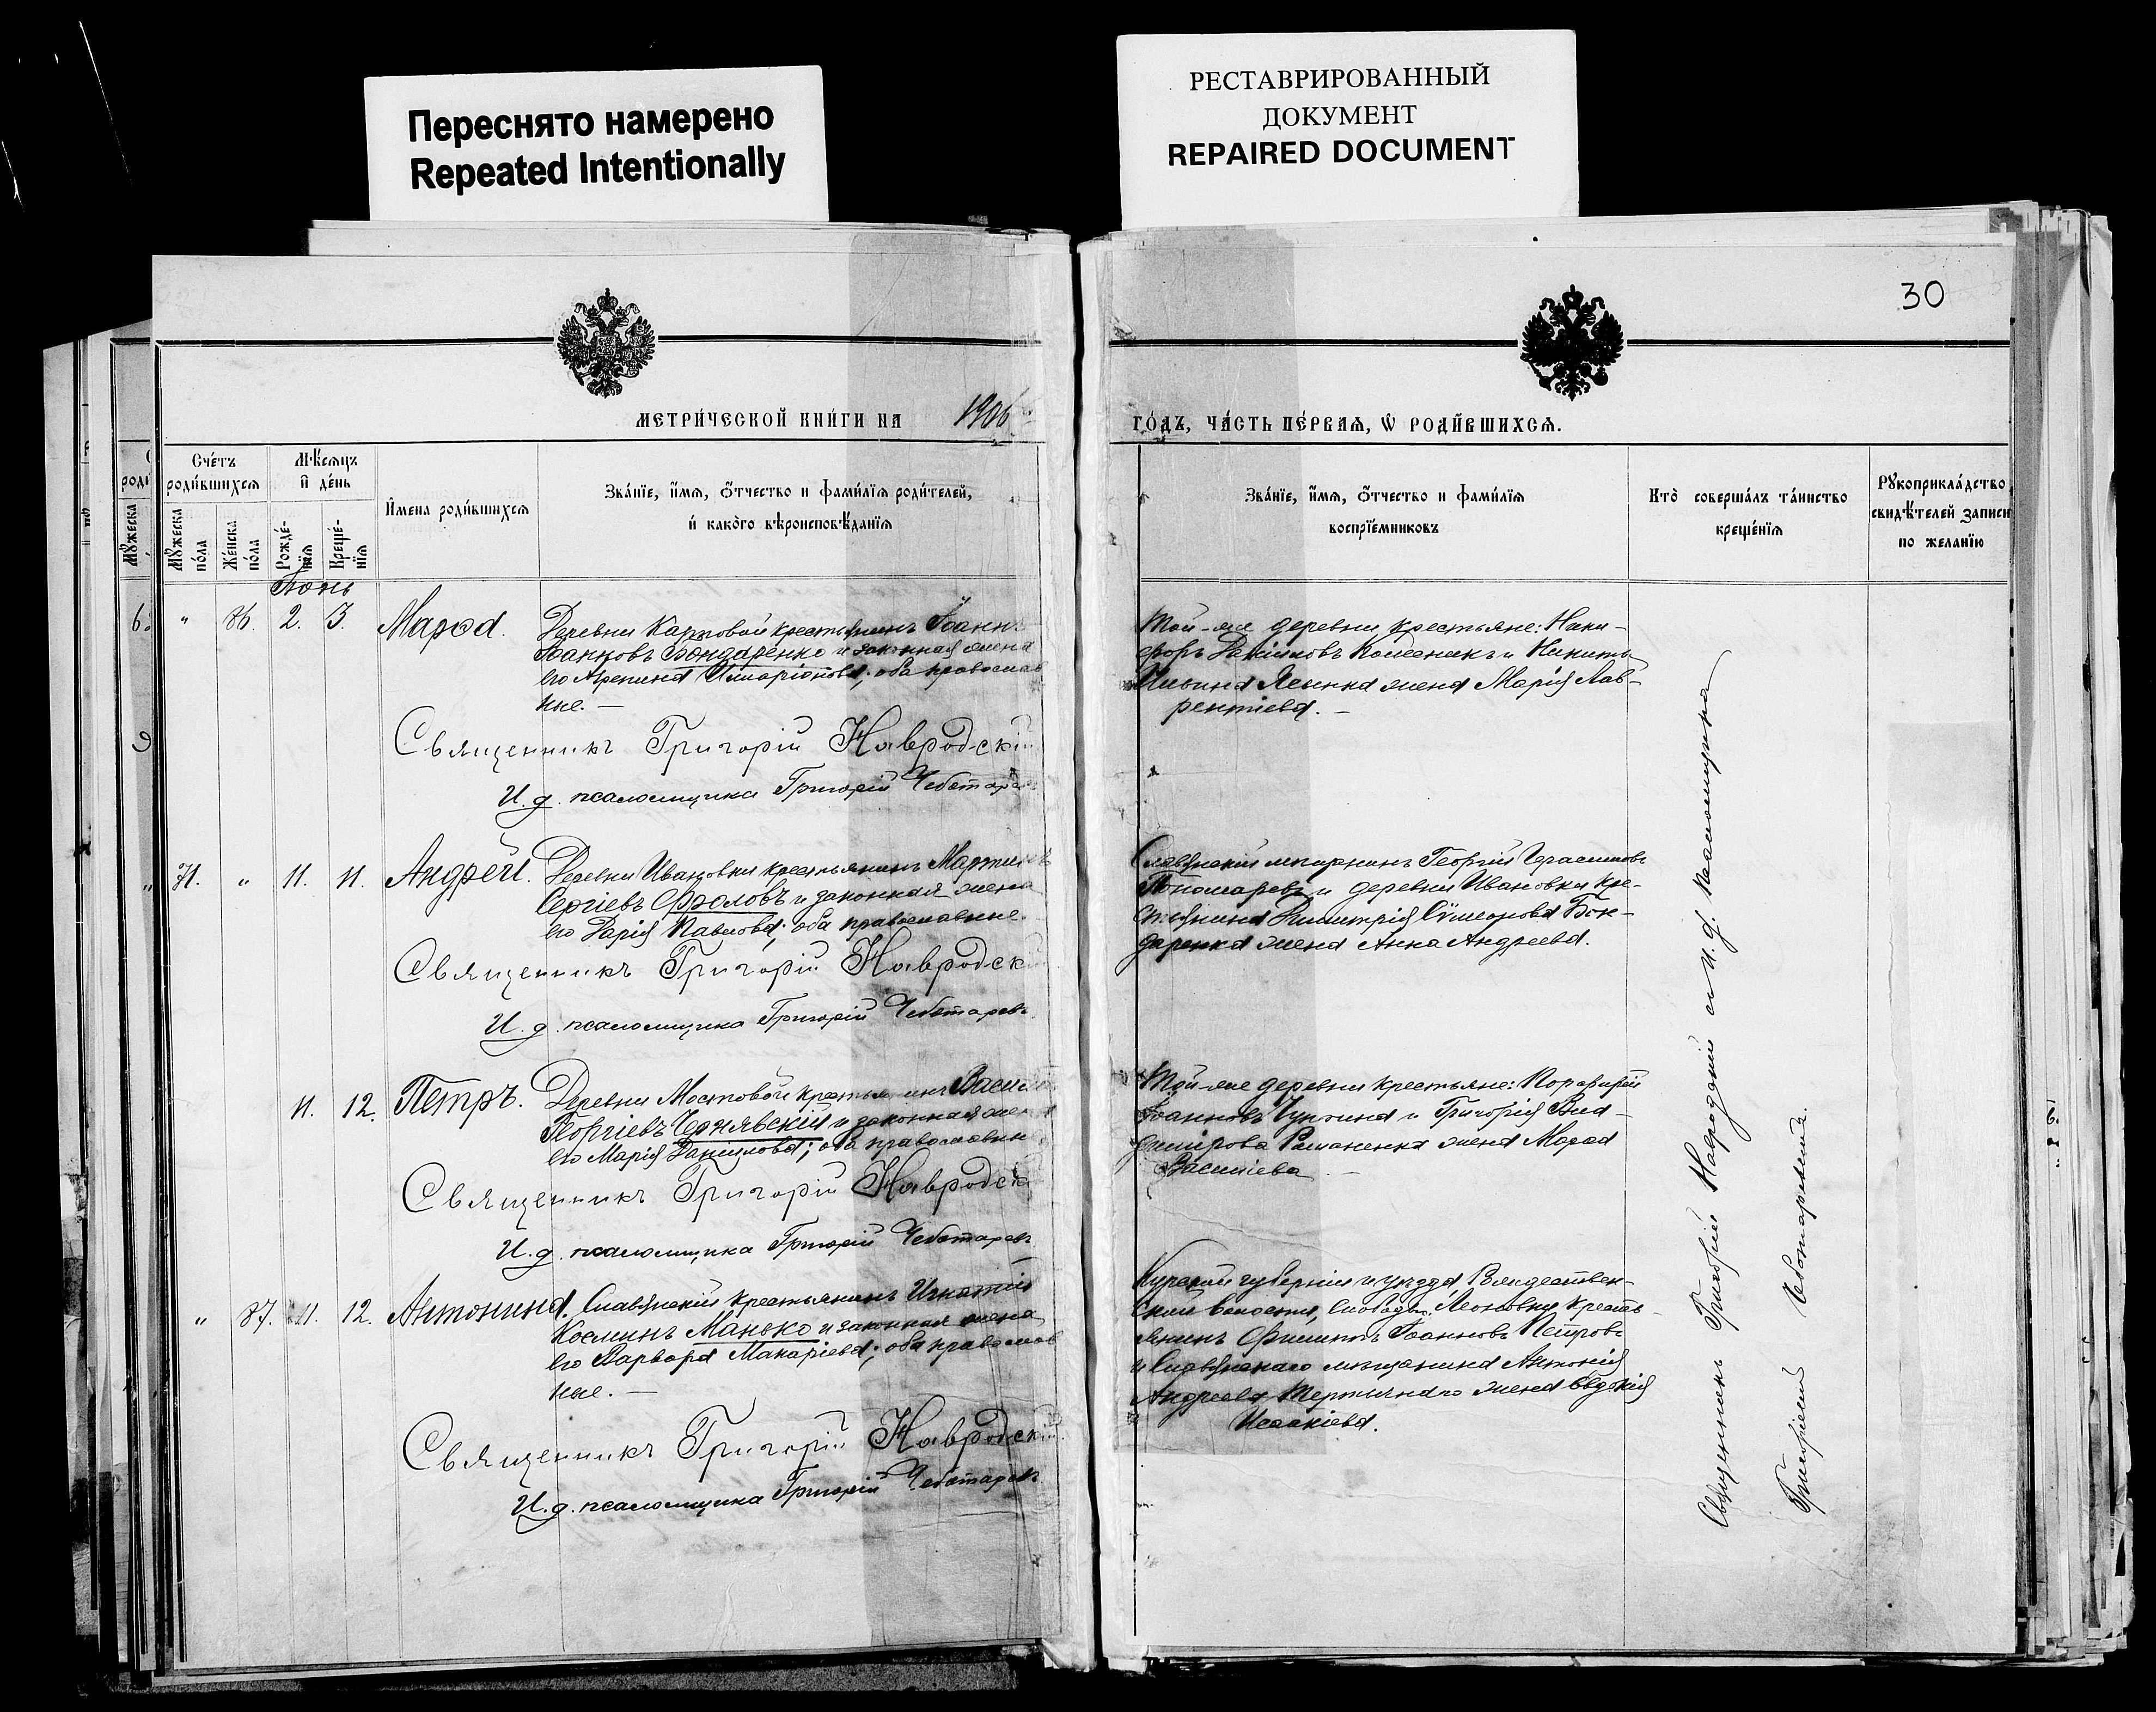 Переснято намерено
Repeated Intentionally
РЕСТАВРИРОВАННЫЙ
ДОКУМЕНТ
REPAIRED DOCUMENT
30
МЕТРИ́ЧЕСКОЙ КНИ́ГИ НА 1906
ГО́ДЪ, ЧА́СТЬ ПЕ́РВАЯ, Ѡ РОДИ́ВШИХСЯ.
Сче́тъ роди́вшихся
Мѣ́сяцъ и҆ де́нь
Му́жеска по́ла
Же́нска по́ла
Рожде́нія
Креще́нія
И҆мена роди́вшихся
Зва́нїе, и҆́мя, ѻ҆́тчество и фами́лїя роди́телей,
и҆ како́го вѣроисповѣ́данїя
Зва́нїе, и҆́мя, ѻ҆́тчество и фами́лїя
воспрїе́мниковъ
Кто̀ соверша́лъ та́инство
креще́нїя
Рꙋкоприкла́дство
свидѣ́телей за́писи
по жела́нїю
Іюнь
" 86. 2. 3. Марѳа.
Деревни Карповой крестьянинъ Іоаннъ
Іоанновъ Бондаренко и законная жена
его Агрипина Иларіонова; оба православ
ные. —
Священникъ Григорій Навродскій
И. д. псаломщика Григорій Чеботаревъ
Той-же деревни крестьяне: Ники-
форъ Даніиловъ и Никиты
Ильина жена Марія Лав-
рентіева. —
71. " 11. 11. Андрей.
Деревни Ивановки крестьянинъ Мартинъ
Сергіевъ Фроловъ и законная жена
его Дарія Павлова; оба православные.
Священникъ Григорій Навродскій
И. д. псаломщика Григорій Чеботаревъ.
Славянскій мѣщанинъ Георгій Герасимовъ
Пономаревъ и деревни Ивановки кре-
стьянина Димитрія Сѵмеонова Бон-
даренка жена Анна Андреева.
11. 12. Петръ.
Деревни Мостовой крестьянинъ Василій
Георгіевъ Чернявскій и законная жена
его Марія Даніилова; оба православны
Священникъ Григорій Навродскій
И. д. псаломщика Григорій Чеботаревъ
Той-же деревни крестьяне: Порфирій
Іоанновъ и Григорія Вла-
димірова Романенка жена Марѳа
Василіева —
" 87. 11. 12. Антонина.
Славянскій крестьянинъ Игнатій
Косминъ Манько и законная жена
его Варвара Макаріева; оба православ
ные. —
Священникъ Григорій Навродскій.
И. д. псаломщика Григорій Чеботаревъ
Курской губерніи и уѣзда, Рождествен-
ской волости, слободы крестъ-
янинъ Филиппъ Іоанновъ Петровъ
и Славянскаго мѣщанина Антонія
Андреева жена Евдокія
Исаакіева.
Священникъ Григорій Навродскій съ и. д. псаломщика
Григоріемъ Чеботаревымъ.